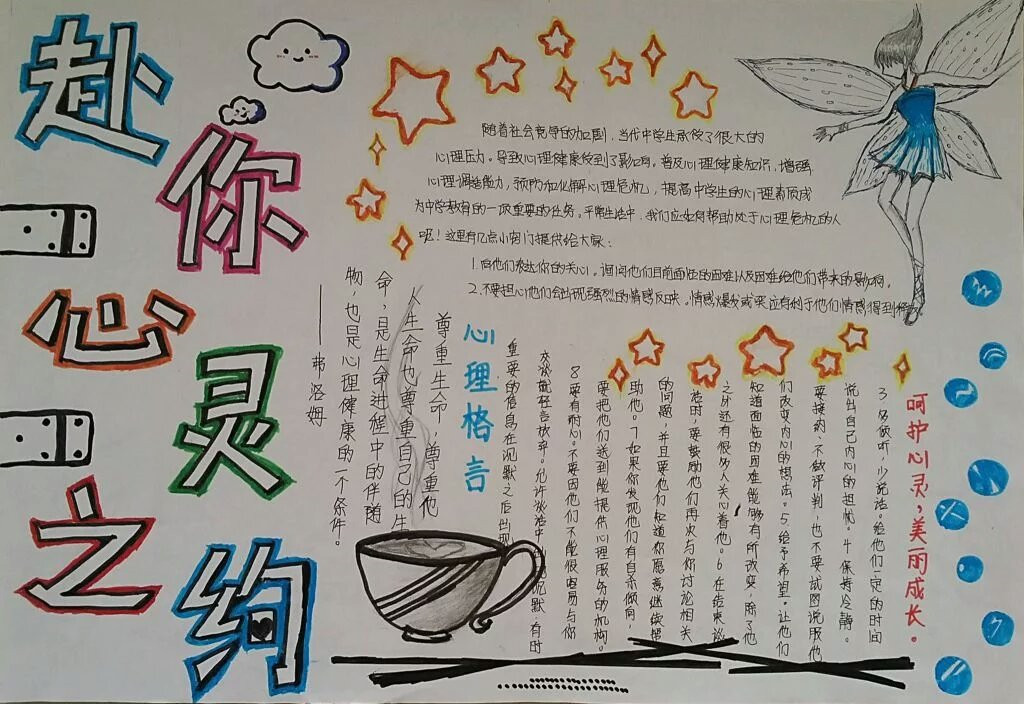 赴
你
心
灵
之
约
随着社会竞争的加剧，当代中学生承受了很大的
心理压力。导致心理健康受到了影响。普及心理健康知识，增强
心理调适能力，预防和化解心理危机，提高中学生的心理素质成
为中学教育的一项重要的任务。平常生活中，我们应如何帮助处于心理危机的人
呢！这里有几点小窍门提供给大家：
1.向他们表达你的关心。询问他们目前面临的困难以及困难给他们带来的影响。
2.不要担心他们会出现强烈的情感反映。情感爆发或哭应有利于他们情感得到释
呵护心灵，美丽成长。
3.多倾听，少说话。给他们一定的时间
说出自己内心的担忧。4.保持冷静。
要接纳、不做评判！也不要试图说服他
们改变内心的想法。5.给予希望。让他们
知道面临的困难能够有所改变，除了他
之外还有很多人关心着他。6.在结束谈
话时，要鼓励他们再次与你讨论相关
的问题，并且要他们知道你愿意继续帮
助他。7.如果你发现他们有自杀倾向，
要把他们送到能提供心理服务的机构。
8.要有耐心。不要因他们不能很容易与你
交谈就轻言放弃。允许谈话中沉默，有时
重要的信息在沉默之后出现
心理格言
尊重生命，尊重他
人生命也尊重自己的生
命，是生命进程中的伴随
物，也是心理健康的一个条件。
——弗洛姆